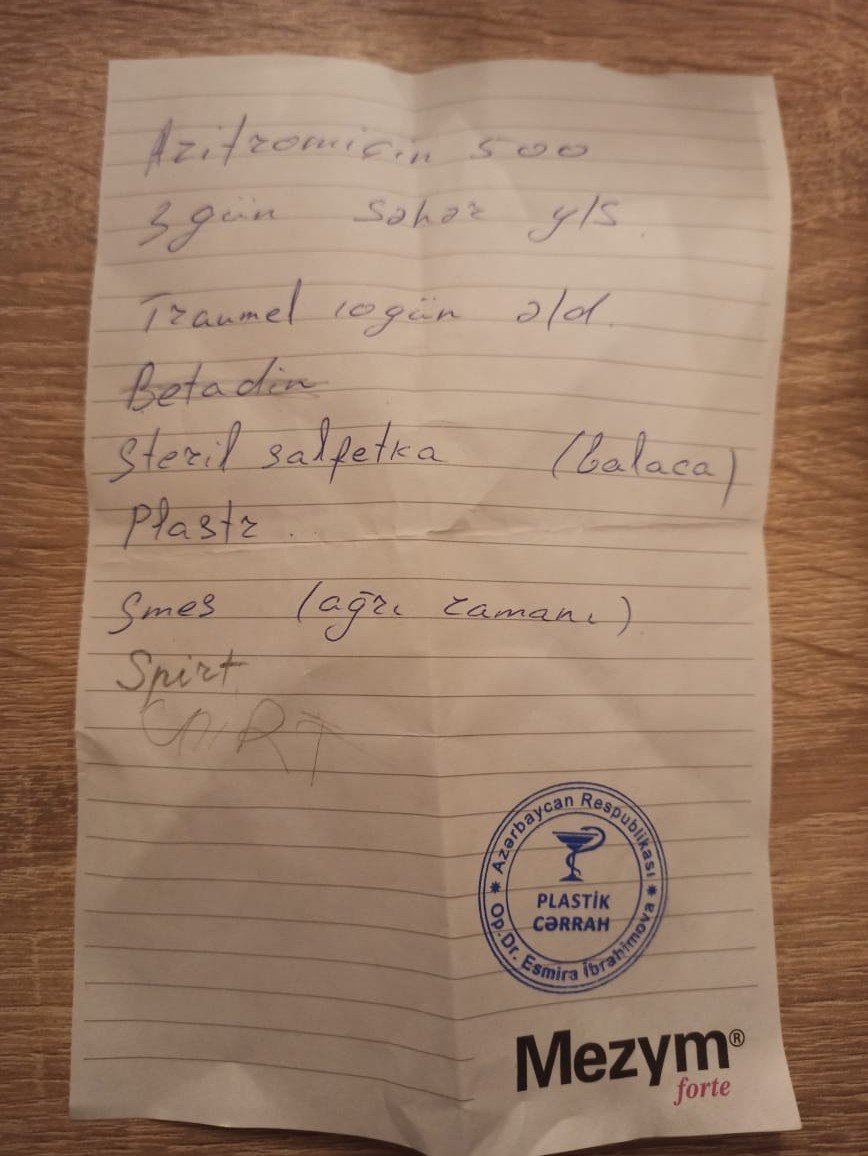 Azitromiçin 500
3 gün səhər y/s.
Traumel 10 gün ə/d.
Betadin
Steril salfetka (balaca)
Plastr ..
Smes (ağrı zamanı)
Spirt
SPIRT
Azərbaycan Respublikası
PLASTİK
CƏRRAH
Op.Dr. Esmira İbrahimova
Mezym®
forte